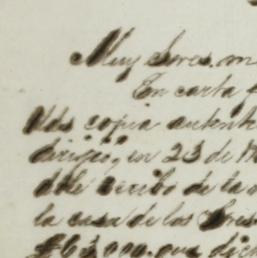 Muy Sres. m
En carta q
Vds copia autent
dirigió, en 23 de M
dole recibo de la
la casa de los Sres
£63,000. que dic